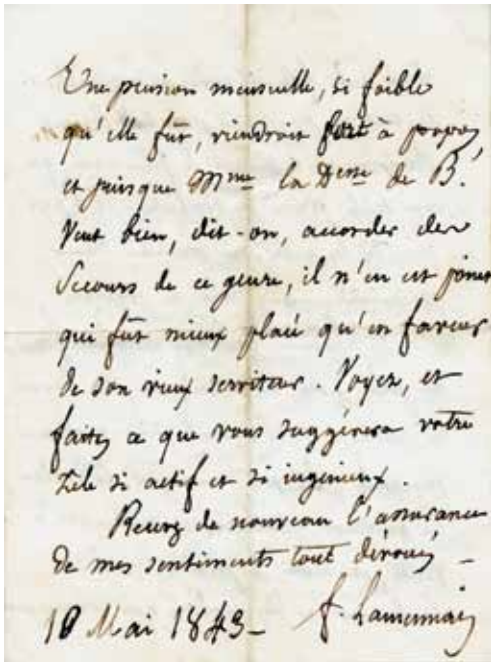 Une pension mensuelle, si foible
qu'elle fût, viendroit fort à propos,
et puisque Mme la Desse de B.
veut bien, dit-on, accorder des
secours de ce genre, il n'en est point
qui fût mieux placé qu'en faveur
de son vieux serviteur. Voyez, et
faites ce que vous suggérera votre
zele si actif et si ingénieux.
Recevez de nouveau l'assurance
de mes sentiments tout dévoués _
10 Mai 1843 _ F. Lamennais